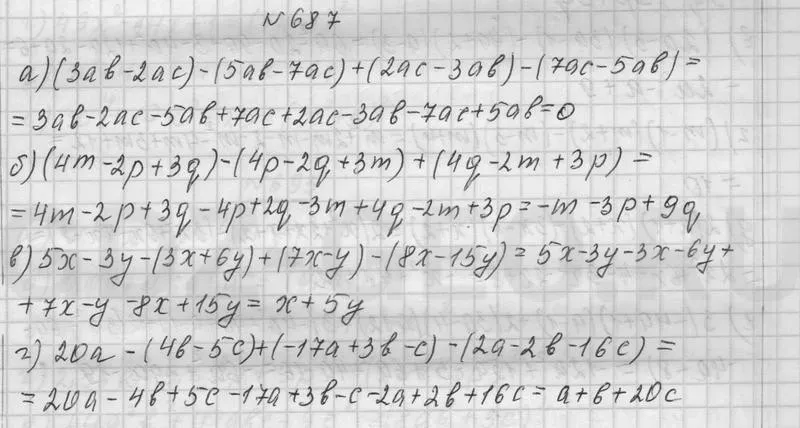 № 687
а) (3ав - 2ас) - (5ав - 7ас) + (2ас - 3ав) - (7ас - 5ав) =
= 3ав - 2ас - 5ав + 7ас + 2ас - 3ав - 7ас + 5ав = 0
б) (4m - 2p + 3q) - (4p - 2q + 3m) + (4q - 2m + 3p) =
= 4m - 2p + 3q - 4p + 2q - 3m + 4q - 2m + 3p = -m - 3p + 9q
в) 5x - 3y - (3x + 6y) + (7x - y) - (8x - 15y) = 5x - 3y - 3x - 6y +
+ 7x - y - 8x + 15y = x + 5y
г) 20а - (4в - 5с) + (-17а + 3в - с) - (2а - 2в - 16с) =
= 20а - 4в + 5с - 17а + 3в - с - 2а + 2в + 16с = а + в + 20с